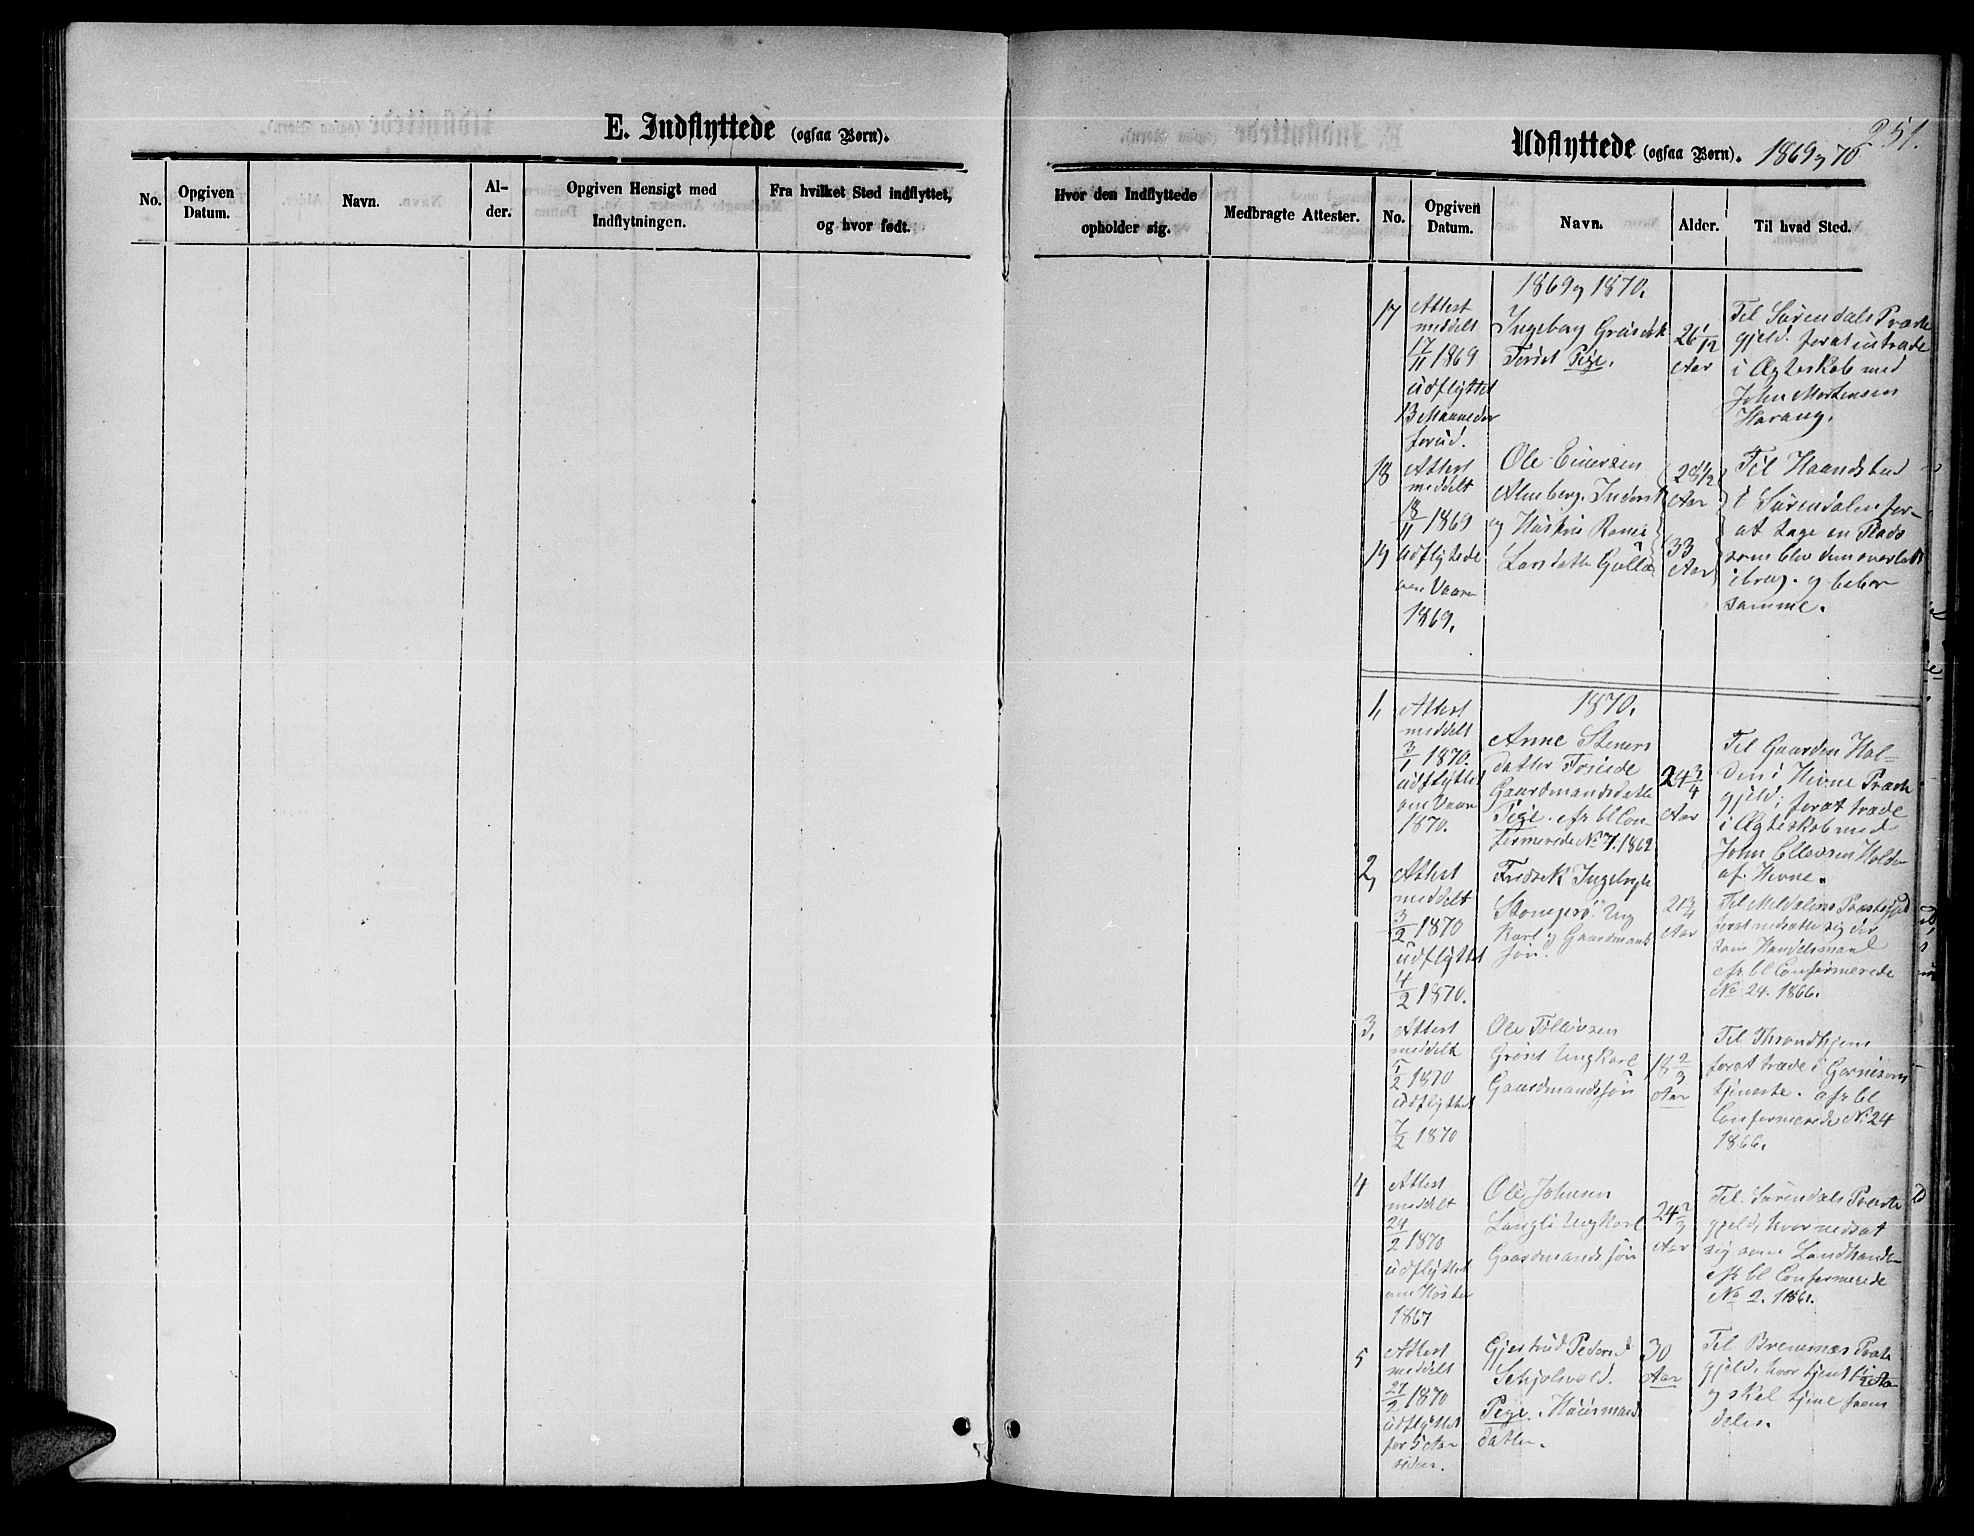 E. Indflyttede (ogsaa Børn).
No.
Opgiven Datum.
Navn.
Al-
der.
Opgiven Hensigt med
Indflytningen.
Fra hvilket Sted indflyttet,
og hvor født.
251.
Udflyttede (ogsaa Børn). 1869 og 70
Hvor den Indflyttede
opholder sig.
Medbragte Attester.
No.
Opgiven Datum.
Navn.
Alder.
Til hvad Sted.
1869 og 1870.
17
Attest
meddelt
17/11 1869
udflyttet
13 Maaneder
forud.
Ingeborg
Pige.
26 1/12
Aar
Til Surendals Præste
gjeld. forat indtræde
i Ægteskab med
John Mortensen
Harang.
18
Attest
meddelt
18/11 1869
19
Udflyttede
om Vaaren
1869.
Ole Einersen
Almberg. Inderst
og Hustru
Larsdatter
28 1/2
Aar
33
Aar
Til Haandstad
i Surendalen for-
at tage en Plads
som blev dem overladt
i brug. og beboer
samme.
1870.
1,
Attest
meddelt
3/1 1870.
udflyttet
om Vaaren
1870.
Anne Steners
datter
Gaardmandsdatter
Pige. cfr bl Con-
firmerede No 7. 1862
24 3/4
Aar
Til Gaarden Hol-
den i Hevne Præste
gjeld; forat træde
i Ægteskab med
John Ellevsen Holden
af Hevne.
2,
Attest
meddelt
3/2 1870
udflyttet
4/2 1870.
Fredrik
Ung
karl og Gaardmands
søn.
21 3/4
Aar
Til Meldalens Præstegjeld
forat nedsætte sig der
som Handelsmand
cfr. bl Confirmerede
No 24. 1866.
3,
Attest
meddelt
5/2 1870
udflyttet
7/2 1870
Ole Tollevsen
Grøset Ungkarl
Gaardmandssøn
18 2/3
Aar
Til Throndhjem
forat træde i Garnisons
tjeneste. cfr bl
Confirmerede No 24
1866.
4
Attest
meddelt
24/2 1870
udflyttet
om Høsten
1867
Ole Johnsen
Langli Ungkarl
Gaardmandssøn
24 2/3
Aar
Til Surendals Præste
gjeld, hvor nedsat
sig som Landhandler
cfr bl Confirmerede
No 2. 1861.
5
Attest
meddelt
27/2 1870
udflyttet
for 5 Aar
siden.
Gjertrud Pedersd
Schjølvold.
Pige. Huusmands
datter.
30
Aar
Til Bremsnæs Præste
gjeld, hvor tjent
og skal tjene frem
deles.